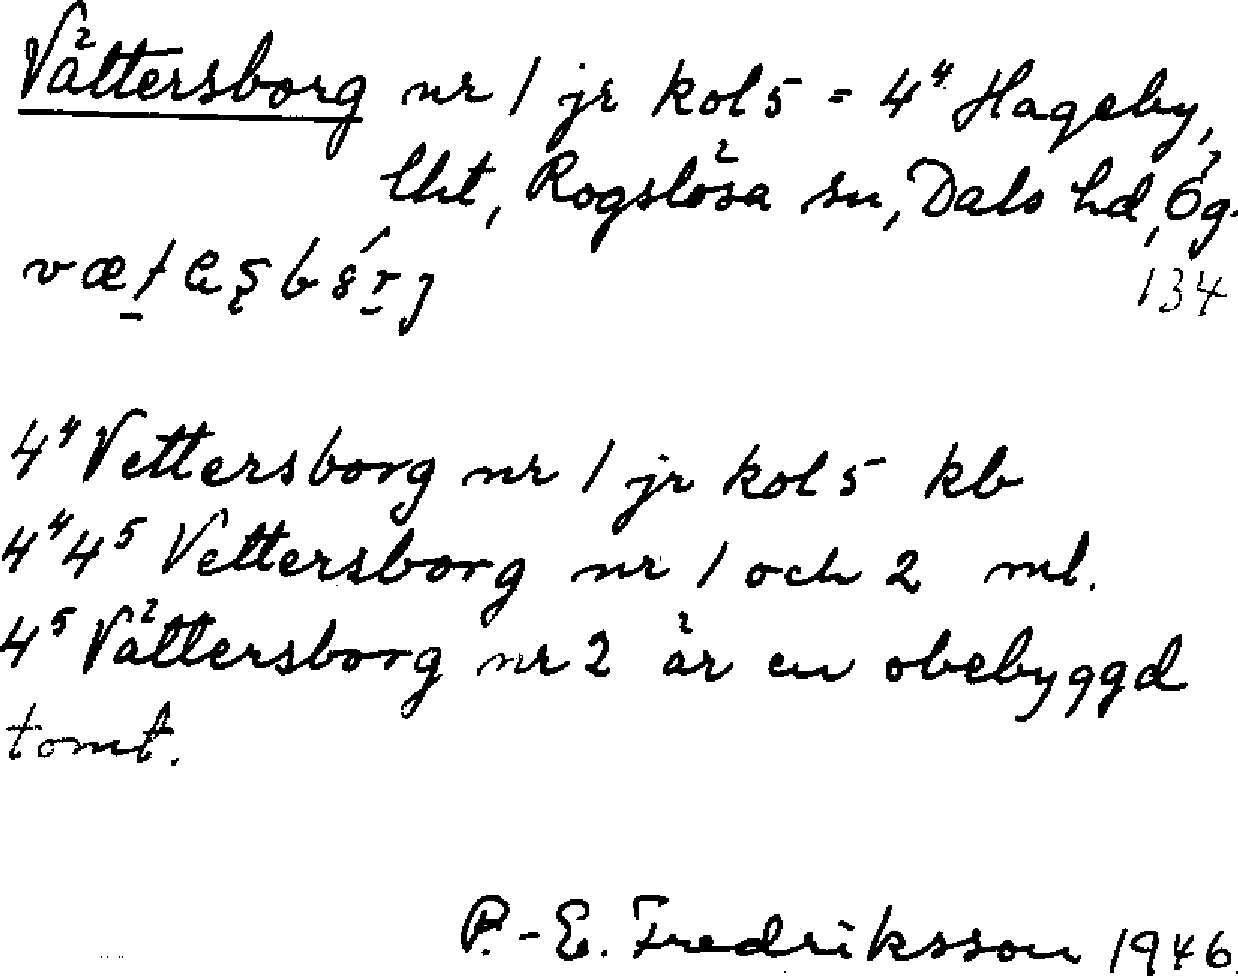 Vättersborg nr 1 jr kol 5 = 4⁴ Hageby,
lht, Rogslösa sn, Dals hd, Ög.
134
4⁴ Vettersborg nr 1 jr kol 5 kb
4⁴ 4⁵ Vettersborg nr 1 och 2 ml.
4⁵ Vättersborg nr 2 är en obebyggd
tomt.
P.-E. Fredriksson 1946.